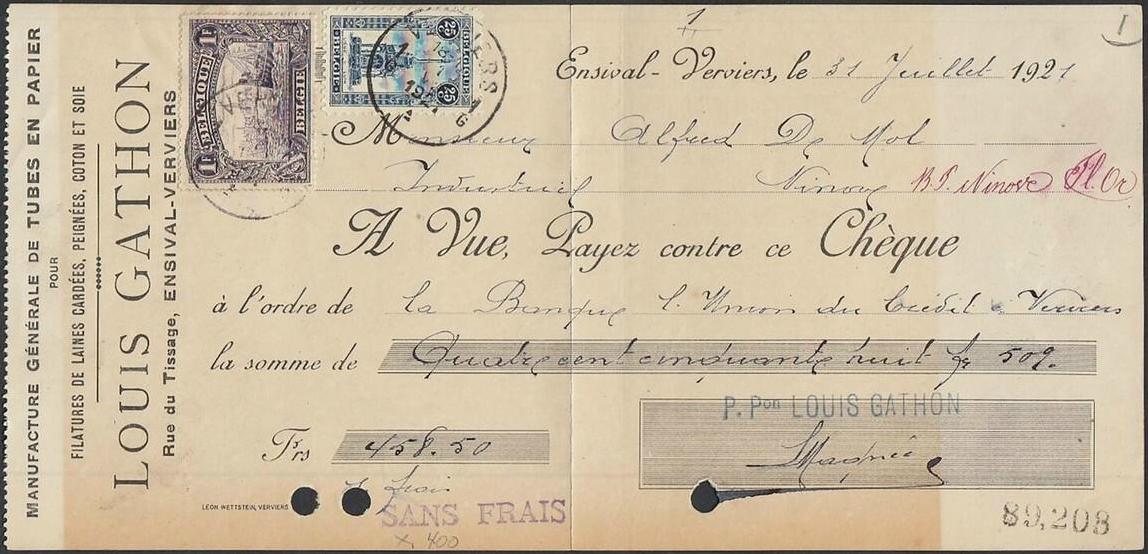 MANUFACTURE GÉNÉRALE DE TUBES EN PAPIER
POUR
FILATURES DE LAINES CARDÉES, PEIGNÉES, COTON ET SOIE
LOUIS GATHON
Rue du Tissage, ENSIVAL-VERVIERS
1F BELGIQUE 1F
BELGIË
25 25
BELGIQUE
VERVIERS
Ensival-Verviers, le 31 Juillet 1921
Monsieur Alfred De Mol
Industriel Ninove BP. Ninove Fl. Or
A Vue, Payez contre ce Chèque
à l'ordre de la Banque l'Union du Crédit à Verviers
la somme de Quatre cent cinquante huit frs 50%.
P. Pon LOUIS GATHON
Frs 458.50
frais
LÉON WETTSTEIN, VERVIERS
SANS FRAIS
x 400
89,208